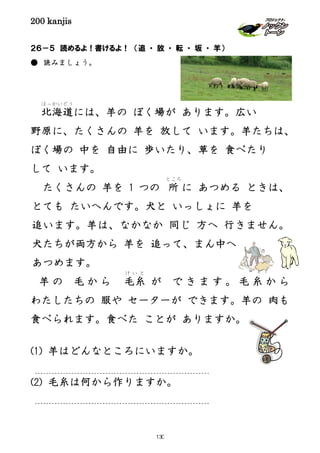 200 kanjis
26－5 読めるよ！書けるよ！（追・放・転・坂・羊）
● 読みましょう。
ほっかいどう
北海道には、羊の ぼく場が あります。広い
野原に、たくさんの 羊を 放して います。羊たちは、
ぼく場の 中を 自由に 歩いたり、草を 食べたり
して います。
ところ
たくさんの 羊を 1 つの 所に あつめる ときは、
とても たいへんです。犬と いっしょに 羊を
追います。羊は、なかなか 同じ 方へ 行きません。
犬たちが両方から 羊を 追って、まん中へ
あつめます。
けいと
羊の 毛から 毛糸が できます。毛糸から
わたしたちの 服や セーターが できます。羊の 肉も
食べられます。食べた ことが ありますか。
(1) 羊はどんなところにいますか。
(2) 毛糸は何から作りますか。